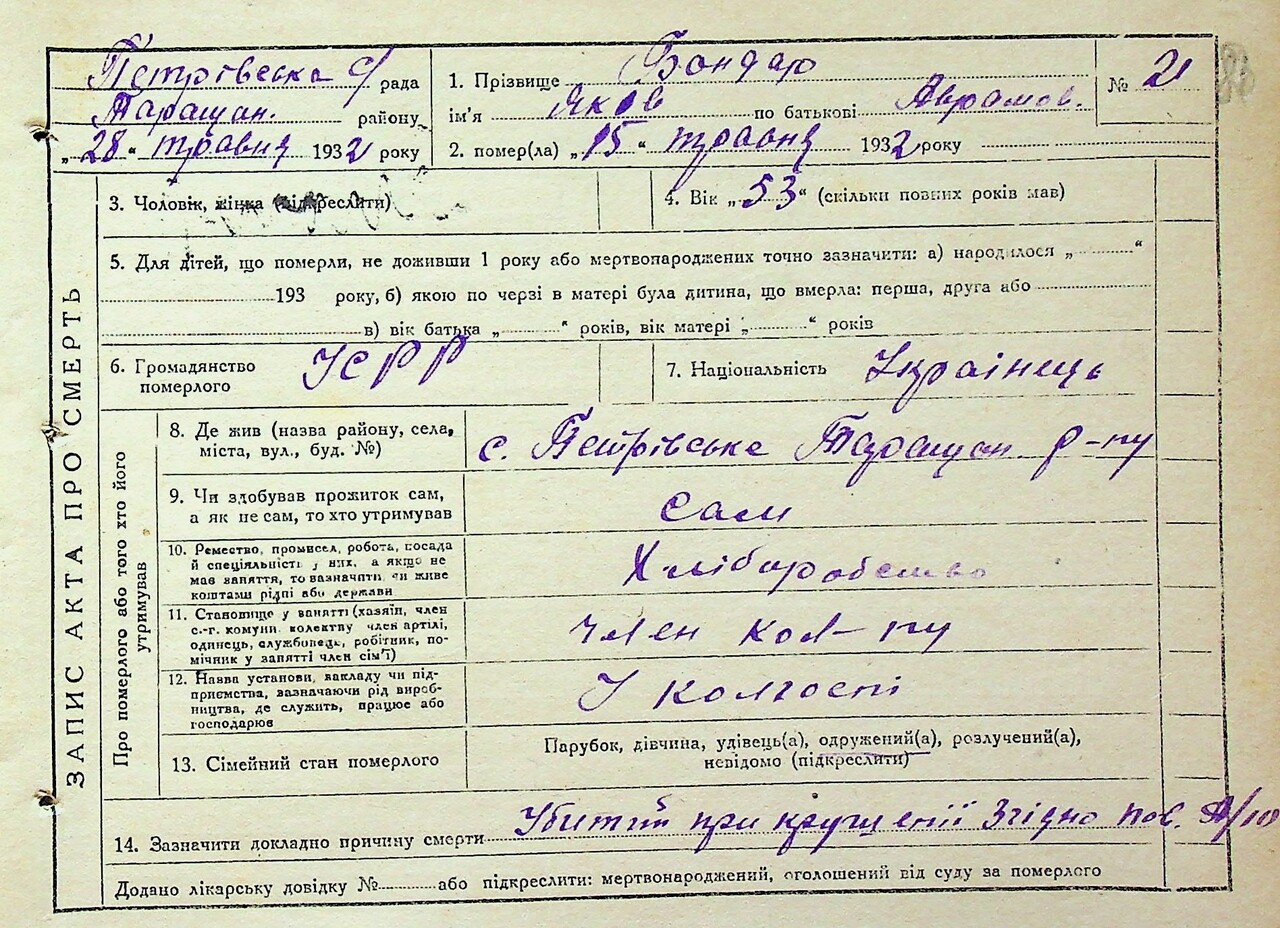 Петрівська с/рада
Таращан. району
„28" травня 1932 року
1. Прізвище Бондар
№ 21
ім'я Яков по батькові Аврамов.
2. помер(ла) „15" травня 1932 року
3. Чоловік, жінка (підкреслити)
4. Вік „53" (скільки повних років мав)
5. Для дітей, що померли, не доживши 1 року або мертвонароджених точно зазначити: а) народилося „ "
193 року, б) якою по черзі в матері була дитина, що вмерла: перша, друга або
в) вік батька „ " років, вік матері „ " років
6. Громадянство
померлого
УСРР
7. Національність Українець
ЗАПИС АКТА ПРО СМЕРТЬ
Про померлого або того хто його
утримував
8. Де жив (назва району, села,
міста, вул., буд. №)
с. Петрівське Таращан. р-ну
9. Чи здобував прожиток сам,
а як не сам, то хто утримував
Сам
10. Ремество, промисел, робота, посада
й спеціяльність у них, а якщо не
має заняття, то зазначити чи живе
коштами рідні або держави
Хліборобство
11. Становище у занятті (хазяїн, член
с.-г. комуни колективу член артілі,
одинець, службовець, робітник, по-
мічник у занятті член сім'ї)
член кол-ну
12. Назва установи, закладу чи під-
приємства, зазначаючи рід вироб-
ництва, де служить, працює або
господарює
У колгоспі
13. Сімейний стан померлого
Парубок, дівчина, удівець(а), одружений(а), розлучений(а),
невідомо (підкреслити)
14. Зазначити докладно причину смерти Убитий при крушенії Згідно пов.
Додано лікарську довідку № або підкреслити: мертвонароджений, оголошений від суду за померлого